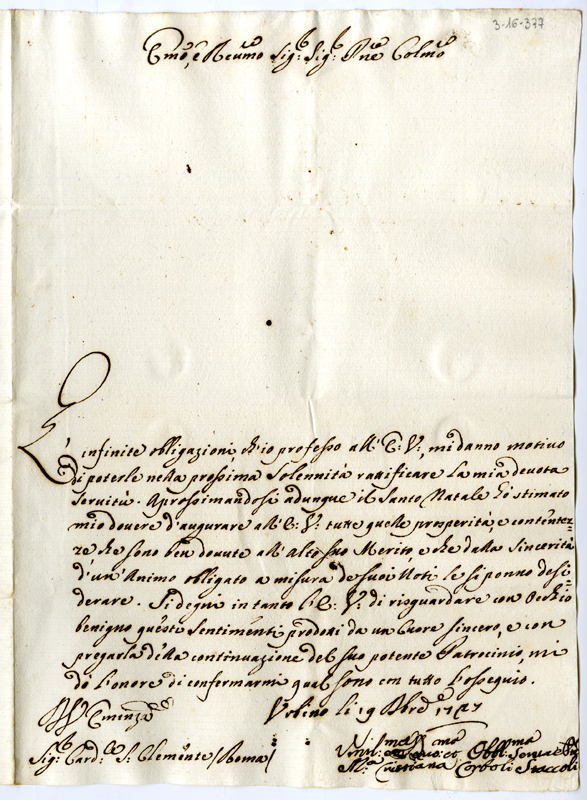 3-16-377
Emo, e Revmo Sig:r Sig:r Pne Colmo
Le infinite obligazioni, ch'io professo all'E: V:, mi danno motivo
di poterle nella prossima Solennità ratificare la mia devota
servitù. Aprossimandosi adunque il Santo Natale hò stimato
mio dovere d'augurare all'E: V: tutte quelle prosperità, e contentez=
ze che sono ben dovute all'Alto suo Merito, e che dalla sincerità
d'un'Animo obligato a misura de suoi Voti le si ponno desi=
derare. Si degni in tanto l'E: V: di risguardare con Occhio
benigno questi sentimenti prodotti da un Cuore sincero, e con
pregarla della continuazione del suo potente Patrocinio, mi
dò l'onore di confermarmi qual sono con tutto l'ossequio.
Eminenza Urbino li 19 Xbre 1747
Sig:r Card:le S: Clemente /Roma/
Cristiana Corboli Staccoli